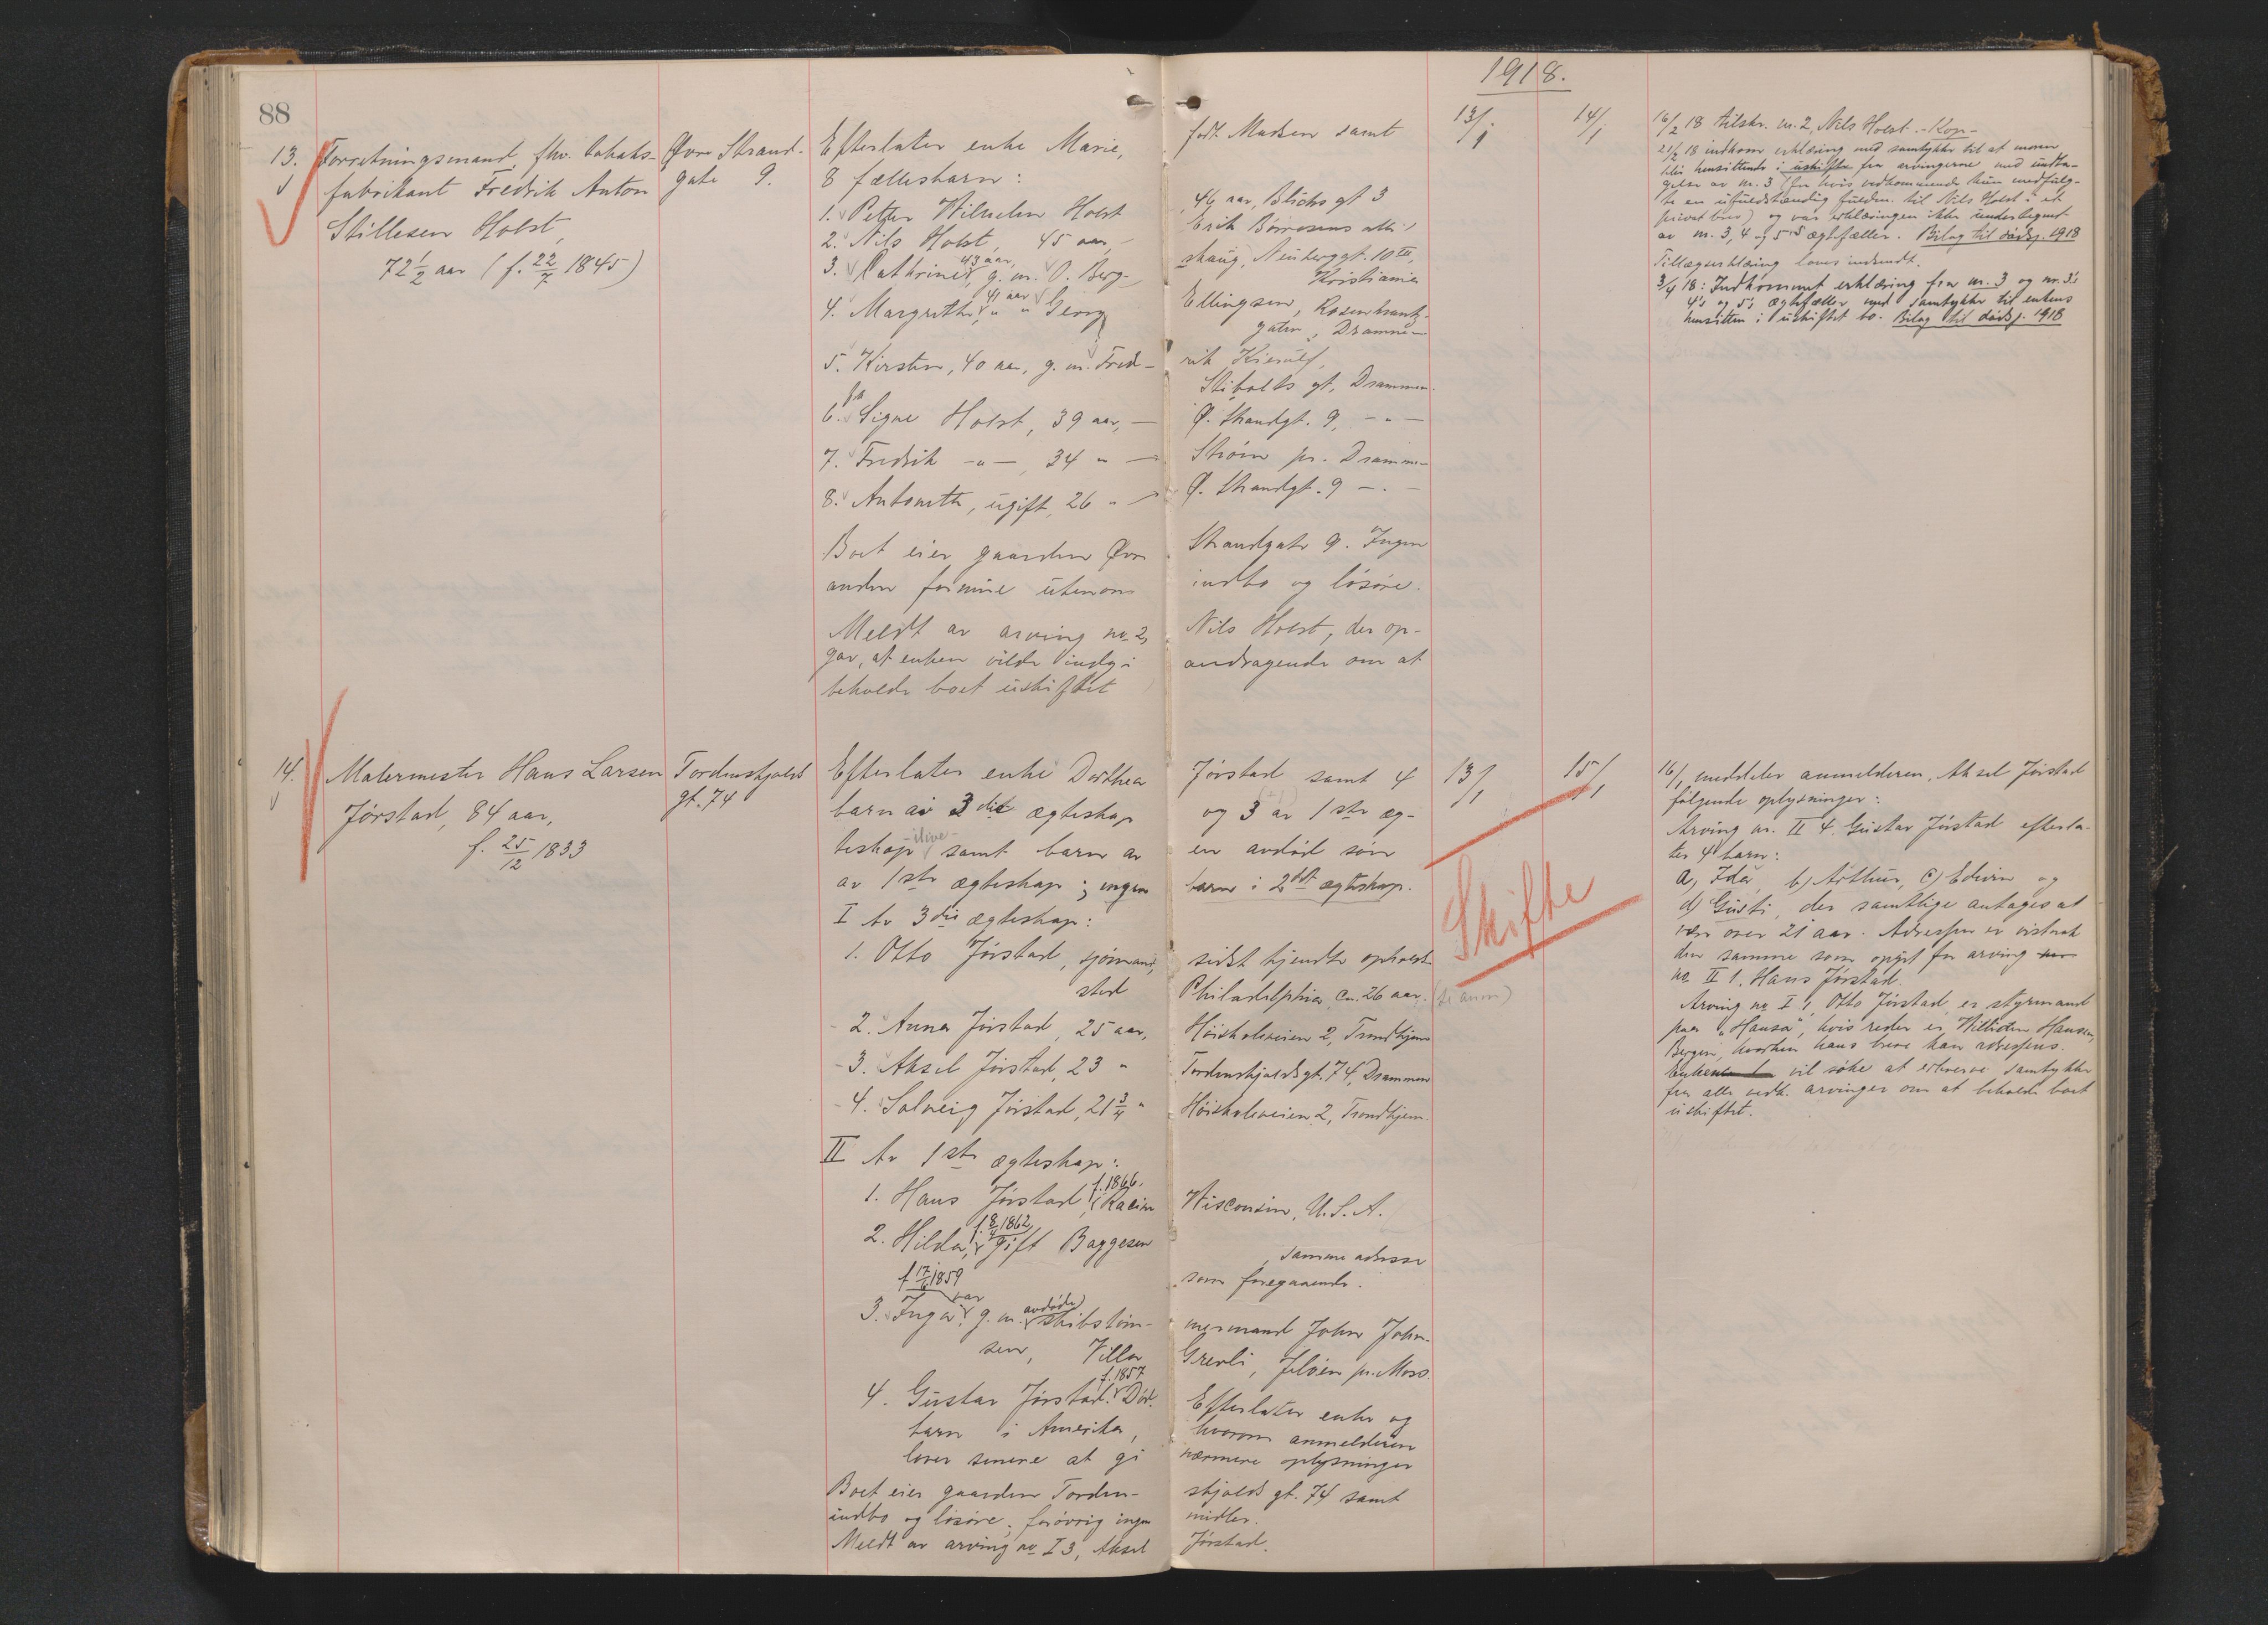 1918.
88
13.
Forretningsmand, fhv. tobaks-
fabrikant Fredrik Anton
Stillesen Holst,
72 1/2 aar (f. 22/7 1845)
Øvre Strand-
gate 9.
Efterlater enke Marie, født Madsen samt
8 fællesbarn:
1. Petter Wilhelm Holst 46 aar, Blichs gt 3
2. Nils Holst, 45 aar, Erik Børresens allé
3. Cathrine, 43 aar, g. m. O. Berg- skaug, Neuberggt. 10 III,
Kristiania
4. Margrethe, 41 aar " " Georg Ellingsen, Rosenkrantz-
gaten, Drammen
5. Kirsten, 40 aar, g. m. Fred- rik Kierulf,
Stibolts gt, Drammen.
6. frk Signe Holst, 39 aar, — Ø. Strandgt. 9, - " -
7. Fredrik - " -, 34 " — Strøm pr. Drammen
8. Antonette, ugift, 26 " Ø. Strandgt. 9 - " -
Boet eier gaarden Øvre Strandgate 9. Ingen
anden formue utenom indbo og løsøre.
Meldt av arving no. 2, Nils Holst, der op-
gav, at enken vilde indgi andragende om at
beholde boet uskiftet
13/1
14/1
16/2 18 tilskr. nr. 2, Nils Holst. - Kop -
21/2 18 indkom erklæring med samtykke til at moren
blir hensittende i uskifte fra arvingerne med undta-
gelse av nr. 3 (for hvis vedkommende kun medfulg-
te en ufuldstændig fuldm. til Nils Holst i et
privat brev) og var erklæringen ikke undertegnet
av nr. 3, 4 og 5's ægtefæller. Bilag til dødsj. 1918
Tillægserklæring loves indsendt.
3/4 18: Indkommet erklæring fra nr. 3 og nr. 3's
4's og 5's ægtefæller med samtykke til enkens
hensitten i uskiftet bo. Bilag til dødsj. 1918
14.
Malermester Hans Larsen
Jørstad, 84 aar,
f. 25/12 1833
Tordenskjolds
gt. 74
Efterlater enke Dorthea Jørstad samt 4
barn av 3die ægteskap og 3 av 1ste æg-
teskap ilive samt barn av en avdød søn
av 1ste ægteskap; ingen barn i 2det ægteskap.
I Av 3die ægteskap:
1. Otto Jørstad, sjømand, sidst kjendte opholds-
sted Philadelphia, ca. 26 aar.
2. Anna Jørstad, 25 aar, Høiskoleveien 2, Trondhjem
3. Aksel Jørstad, 23 " Tordenskjoldsgt. 74, Drammen
4. Solveig Jørstad, 21 3/4 " Høiskoleveien 2, Trondhjem.
II Av 1ste ægteskap:
1. Hans Jørstad, f. 1866. i Racine Wisconsin, U.S.A.
2. Hilda, f. 8/4 1862 gift Baggesen, samme adresse
som foregaaende.
f 17/6 1859
3. Inga, var g. m. avdøde skibstøm- mermand John John-
sen, Villa Grenli, Jeløen pr. Moss.
4. Gustav Jørstad. f. 1857 Død. Efterlater enke og
barn i Amerika, hvorom anmelderen
lover senere at gi nærmere oplysninger
Boet eier gaarden Torden- skjolds gt. 74 samt
indbo og løsøre; forøvrig ingen midler.
Meldt av arving no I 3, Aksel Jørstad.
13/1
15/1
Skifte
16/1 meddeler anmelderen, Aksel Jørstad
følgende oplysninger:
Arving nr. II 4. Gustav Jørstad efterla-
ter 4 barn:
a) Ida, b) Arthur, c) Edwin og
d) Gusti, der samtlige antages at
være over 21 aar. Adressen er visstnok
den samme som opgit for arving
no. II 1, Hans Jørstad.
Arving no I 1, Otto Jørstad, er styrmand
paa "Hansa", hvis reder er Hansen,
Bergen, hvorhen hans breve kan adresseres.
Enken vil søke at erhverve samtykke
fra alle vedk. arvinger om at beholde boet
uskiftet.